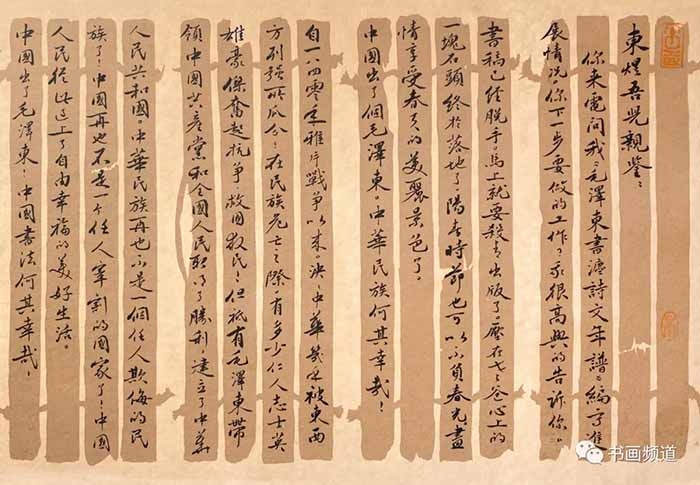 東煜吾兒親鑒：
你来電問我《毛澤東書法詩文年譜》編寫進
展情况。你下一步要做的工作？我很高興的告訴你
書稿已经脱手。馬上就要殺青出版了。壓在老爸心上的
一塊石頭终於落地了。陽春時節也可以不負春光盡
情享受春天的美麗景色了。
中國出了個毛澤東。中華民族何其幸哉！
自一八四零年雅片戰争以来。泱泱中華幾近被東西
方列强所瓜分！在民族危亡之際有多少仁人志士英
雄豪傑奮起抗争救國救民！但祗有毛澤東帶
領中國共產黨和全國人民取得了勝利，建立了中華
人民共和國。中華民族再也不是一個任人欺侮的民
族了！中國再也不是一个任人宰割的國家了！中國
人民從此过上了自由幸福的美好生活。
中國出了毛澤東！中國書法何其幸哉！
书画频道